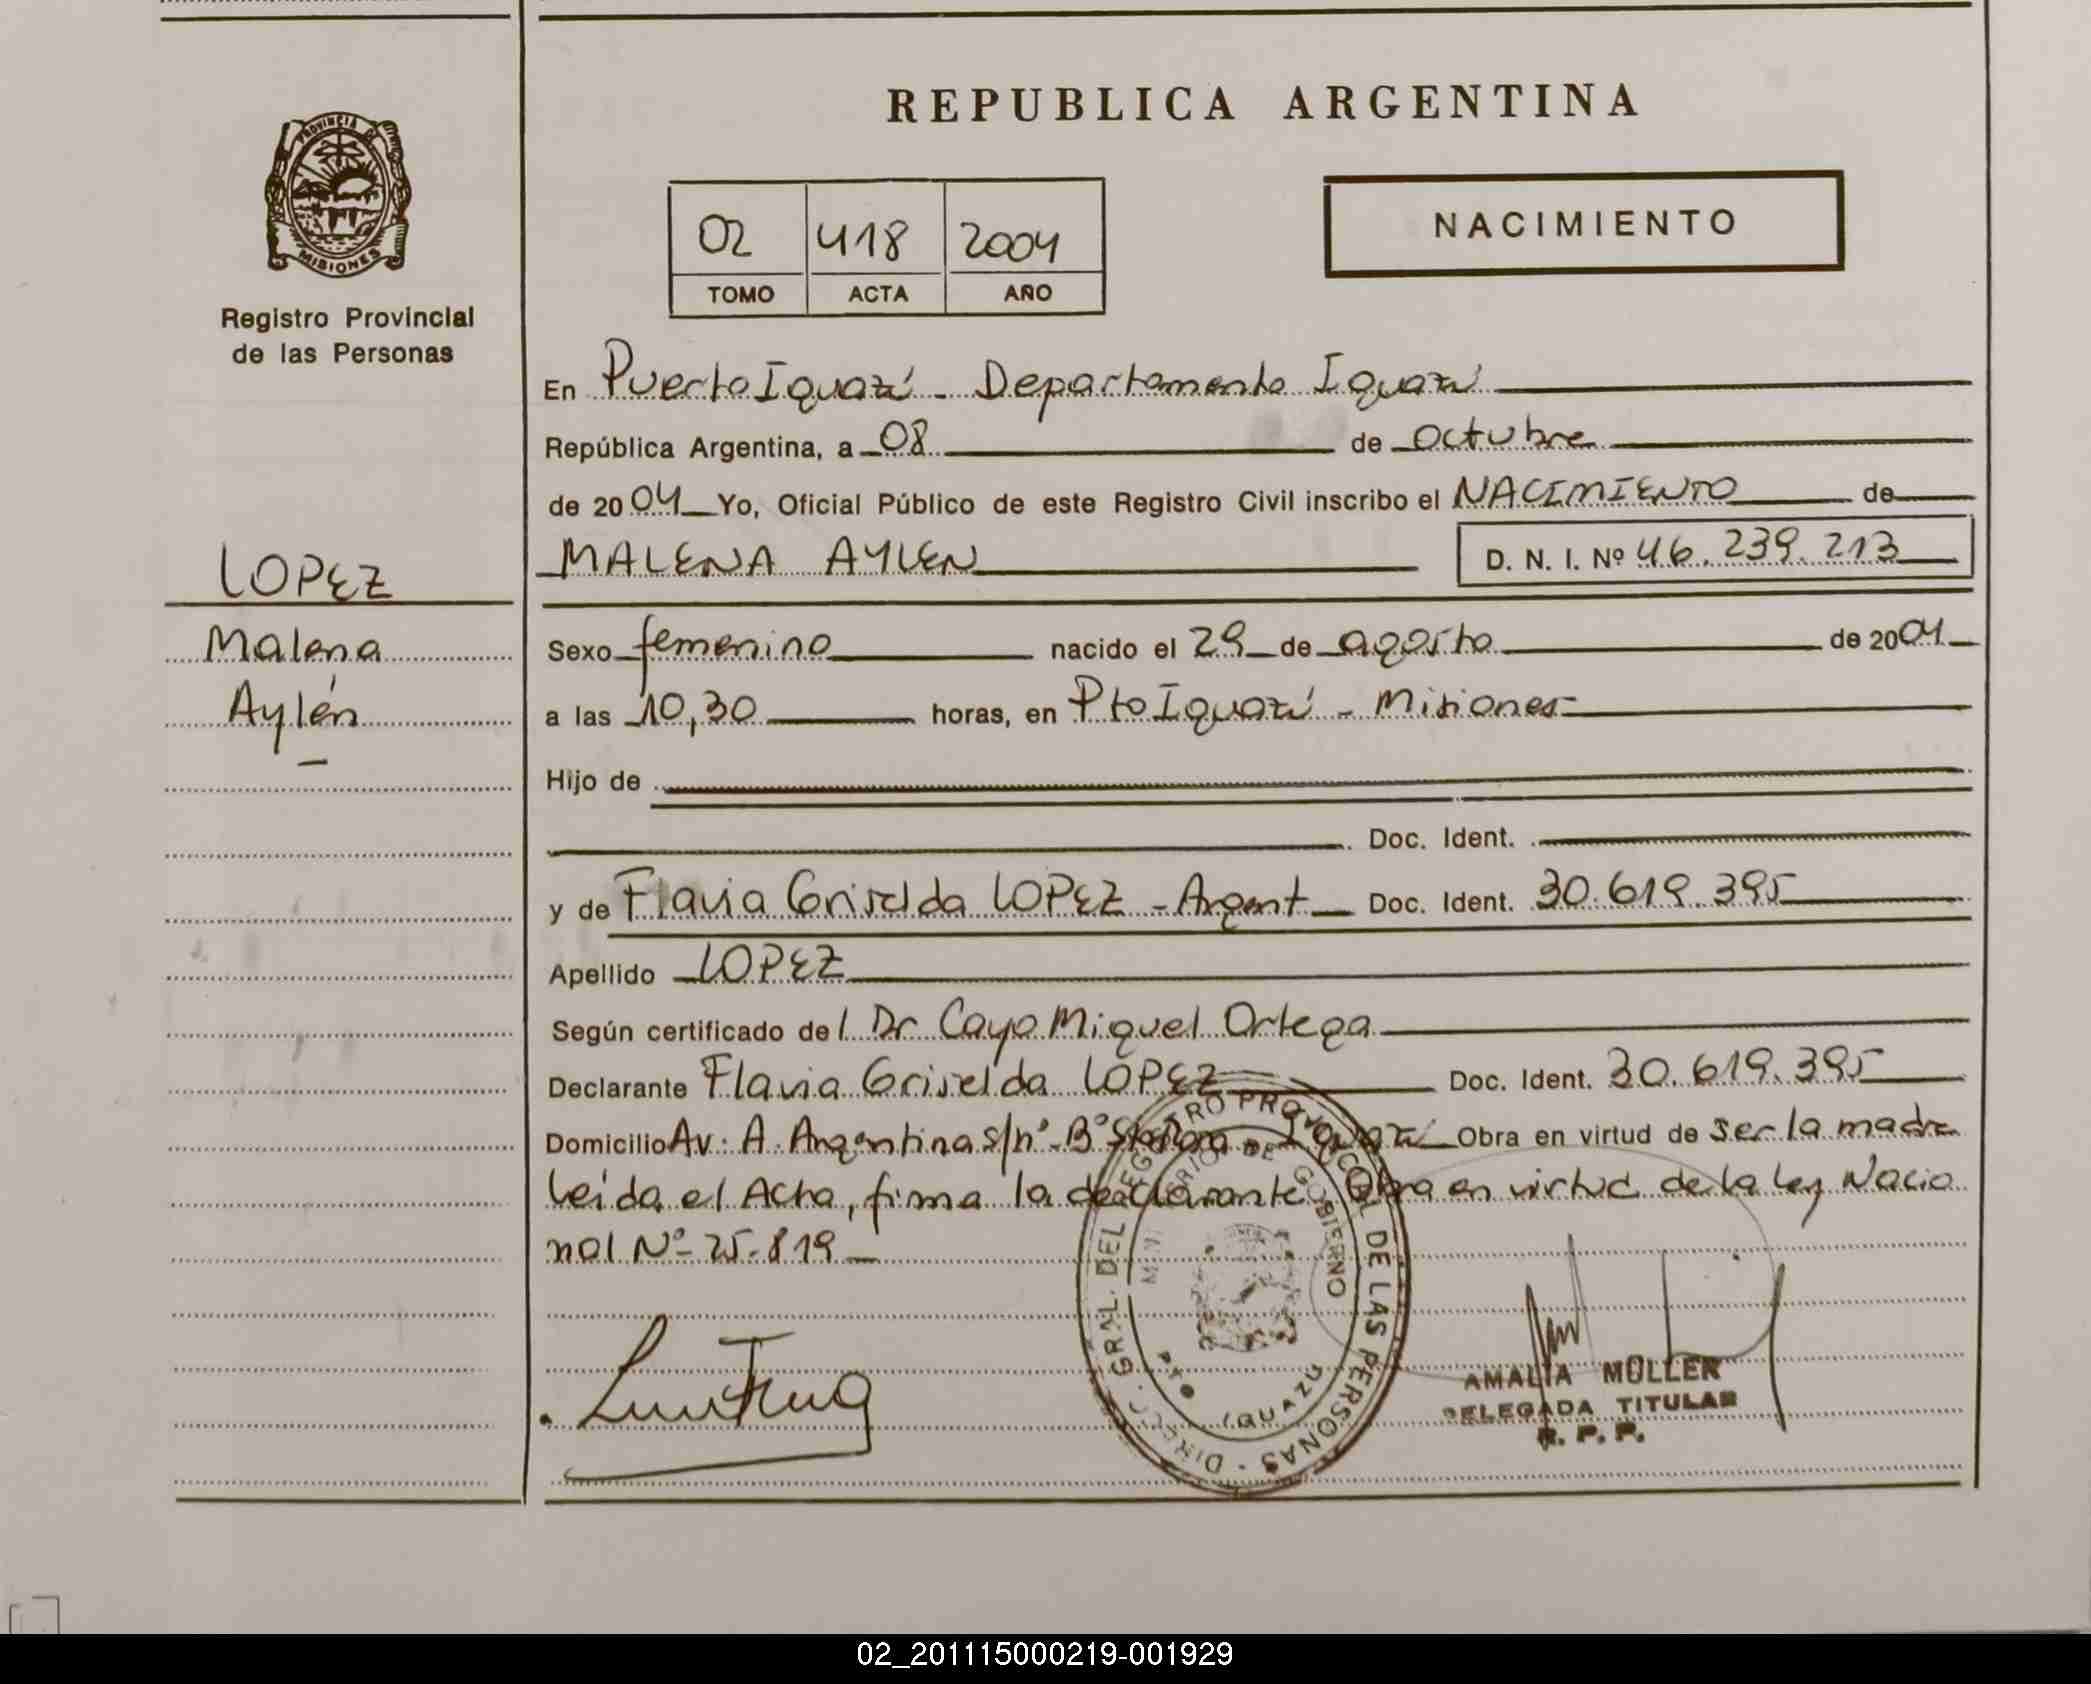 REPUBLICA ARGENTINA
PROVINCIA DE
MISIONES
Registro Provincial
de las Personas
02 418 2004
TOMO ACTA AÑO
NACIMIENTO
En Puerto Iguazú - Departamento Iguazú
República Argentina, a 08 de octubre
de 2004 Yo, Oficial Público de este Registro Civil inscribo el NACIMIENTO de
MALENA AYLEN D. N. I. Nº 46.239.213
LOPEZ
Malena
Aylén
Sexo femenino nacido el 29 de agosto de 2004
a las 10,30 horas, en Pto Iguazú - Misiones
Hijo de
Doc. Ident.
y de Flavia Griselda LOPEZ - Argent Doc. Ident. 30.619.395
Apellido LOPEZ
Según certificado del Dr Cayo Miguel Ortega
Declarante Flavia Griselda LOPEZ Doc. Ident. 30.619.395
Domicilio Av. A. Argentina s/nº - Bº Iguazú Obra en virtud de ser la madre
Leída el Acta, firma la declarante. Obra en virtud de la Ley Nacio
nal Nº 25.819 -
DIREC. GRAL. DEL REGISTRO PROVINCIAL DE LAS PERSONAS
MINISTERIO DE GOBIERNO
PTO IGUAZÚ
AMALIA MULLER
DELEGADA TITULAR
R. P. P.
02_201115000219-001929